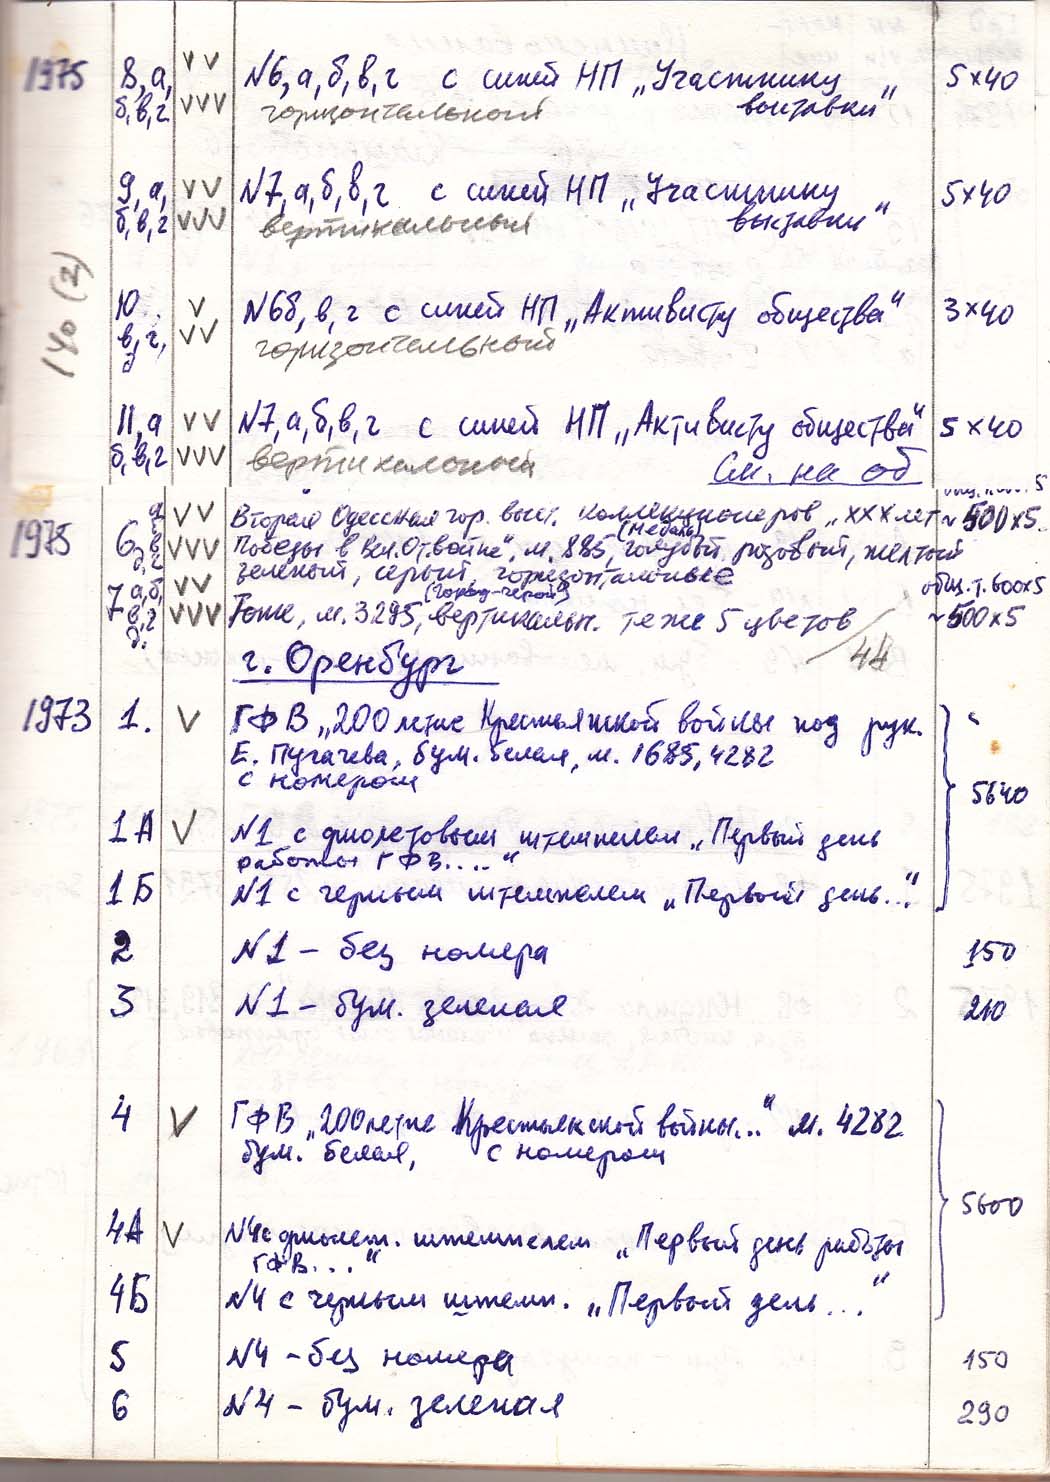 1975 8,а, vv N6,а,б,в,г с синей НП „Участнику 5×40
б,в,г vvv горизонтальный выставки“
9,а, vv N7,а,б,в,г с синей НП „Участнику 5×40
б,в,г vvv вертикальный выставки“
140 (2)
10 v N6б,в,г с синей НП „Активисту общества“ 3×40
в,г, vv горизонтальный
11,а vv N7,а,б,в,г с синей НП „Активисту общества“ 5×40
б,в,г vvv вертикальный См. на об
vv Вторая Одесская гор. выст. коллекционеров „XXX лет ~500х5.
1975 6 vvv Победы в Вел.От.войне“, м. 885, (медаль) голубой, розовый, желтый
vv зеленый, серый, горизонтальные общ.т.600х5
7 а,б, в,г д. vvv Тоже, м. 3295, (город-герой) вертикальн. те же 5 цветов ~500х5
44
г. Оренбург
1973 1. v ГФВ „200летие Крестьянской войны под рук.
Е. Пугачева, бум. белая, м. 1685, 4282
с номером 5640
1А v N1 с фиолетовым штемпелем „Первый день
работы ГФВ....“
1Б N1 с черным штемпелем „Первый день...“
2 N1 – без номера 150
3 N1 – бум. зеленая 210
4 v ГФВ „200летие Крестьянской войны...“ м. 4282
бум. белая, с номером
5600
4А v N4 с фиолет. штемпелем „Первый день работы
ГФВ....“
4Б N4 с черным штемп. „Первый день...“
5 N4 – без номера 150
6 N4 – бум. зеленая 290